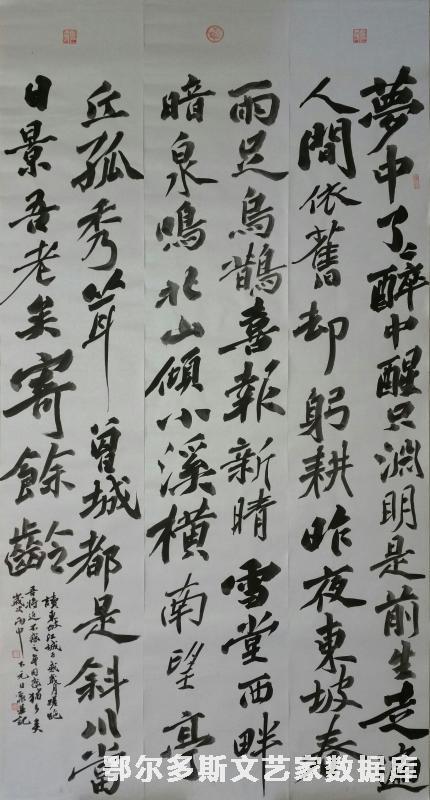 夢中了了醉中醒只淵明是前生走遍
人間依舊却躬耕昨夜東坡春
雨足烏鵲喜報新晴雪堂西畔
暗泉鳴北山傾小溪橫南望亭
丘孤秀聳曾城都是斜川當
日景吾老矣寄餘齡
讀東坡江城子感歲月蹉跎
吾將近不惑之年
歲次丙申
鄂尔多斯文艺家数据库